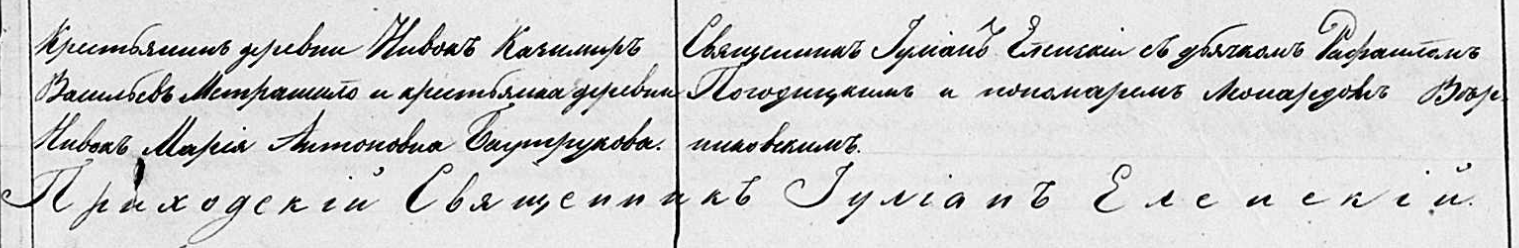 Крестьянинъ деревни Нивокъ Казимиръ
Васильевъ Метрашило и крестьянка деревни
Нивокъ Марія Антоновна Баутрукова.
Священникъ Іуліанъ Еленскій съ дьячкомъ Рафаиломъ
Погодицкимъ и пономаремъ Вѣр-
никовскимъ.
Приходскій Священникъ Іуліанъ Еленскій.